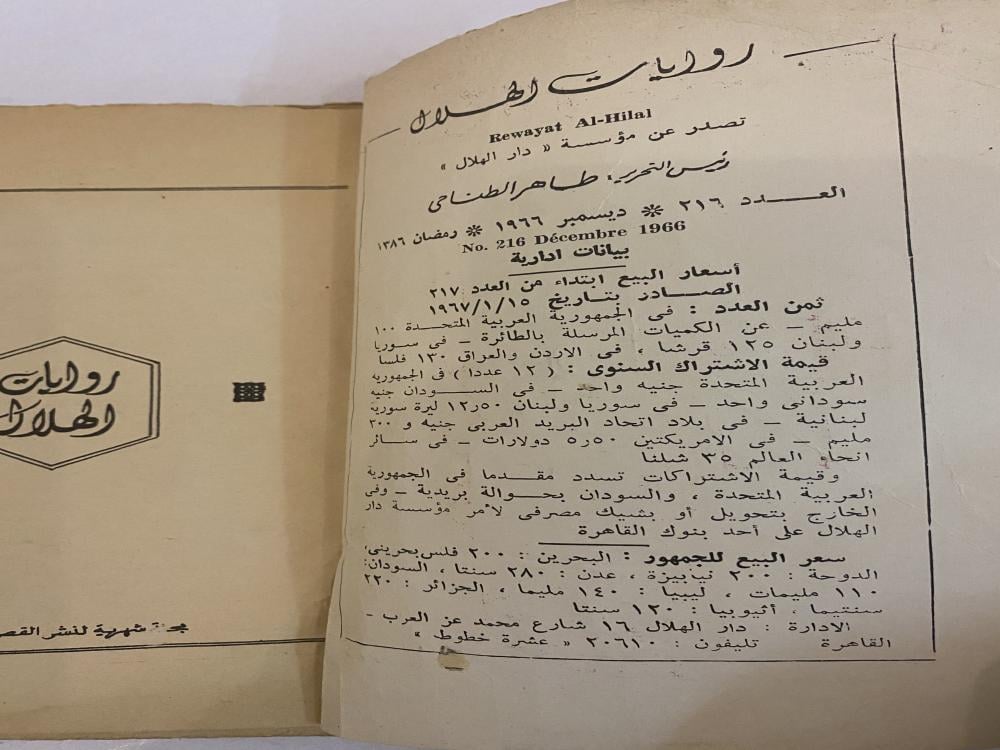 روايات الهلال
Rewayat Al-Hilal
تصدر عن مؤسسة « دار الهلال »
رئيس التحرير : طاهر الطناحى
العـــدد ٢١٦ ❊ ديسمبر ١٩٦٦ ❊ رمضان ١٣٨٦
No. 216 Décembre 1966
بيانات ادارية
أسعار البيع ابتداء من العدد ٢١٧
الصـــادر بتاريخ ١٩٦٧/١/١٥
ثمن العدد : فى الجمهورية العربية المتحدة ١٠٠
مليم – عن الكميات المرسلة بالطائرة – فى سوريا
ولبنان ١٢٥ قرشا ، فى الاردن والعراق ١٣٠ فلسا
قيمة الاشتراك السنوى : ( ١٢ عددا ) فى الجمهورية
العربية المتحدة جنيه واحد – فى الســودان جنيه
سودانى واحد – فى سوريا ولبنان ١٢٫٥٠ ليرة سورية
لبنانية – فى بلاد اتحاد البريد العربى جنيه و ٣٠٠
مليم – فى الامريكتين ٥٫٥٠ دولارات – فى سائر
انحاء العالم ٣٥ شلنا
وقيمة الاشتراكات تسدد مقدما فى الجمهورية
العربية المتحدة ، والسودان بحوالة بريدية – وفى
الخارج بتحويل أو بشيك مصرفى لأمر مؤسسة دار
الهلال على أحد بنوك القاهرة
سعر البيع للجمهور : البحرين : ٢٠٠ فلس بحرينى،
الدوحة : ٢٠٠ نيابيزة ، عدن : ٢٨٠ سنتا ، السودان:
١١٠ مليمات ، ليبيا : ١٤٠ مليما ، الجزائر : ٢٢٠
سنتيما ، أثيوبيا : ١٢٠ سنتا
الادارة : دار الهلال ١٦ شارع محمد عز العرب –
القاهرة تليفون : ٢٠٦١٠ « عشرة خطوط »
روايات
الهلال
مجلة شهرية لنشر القصص